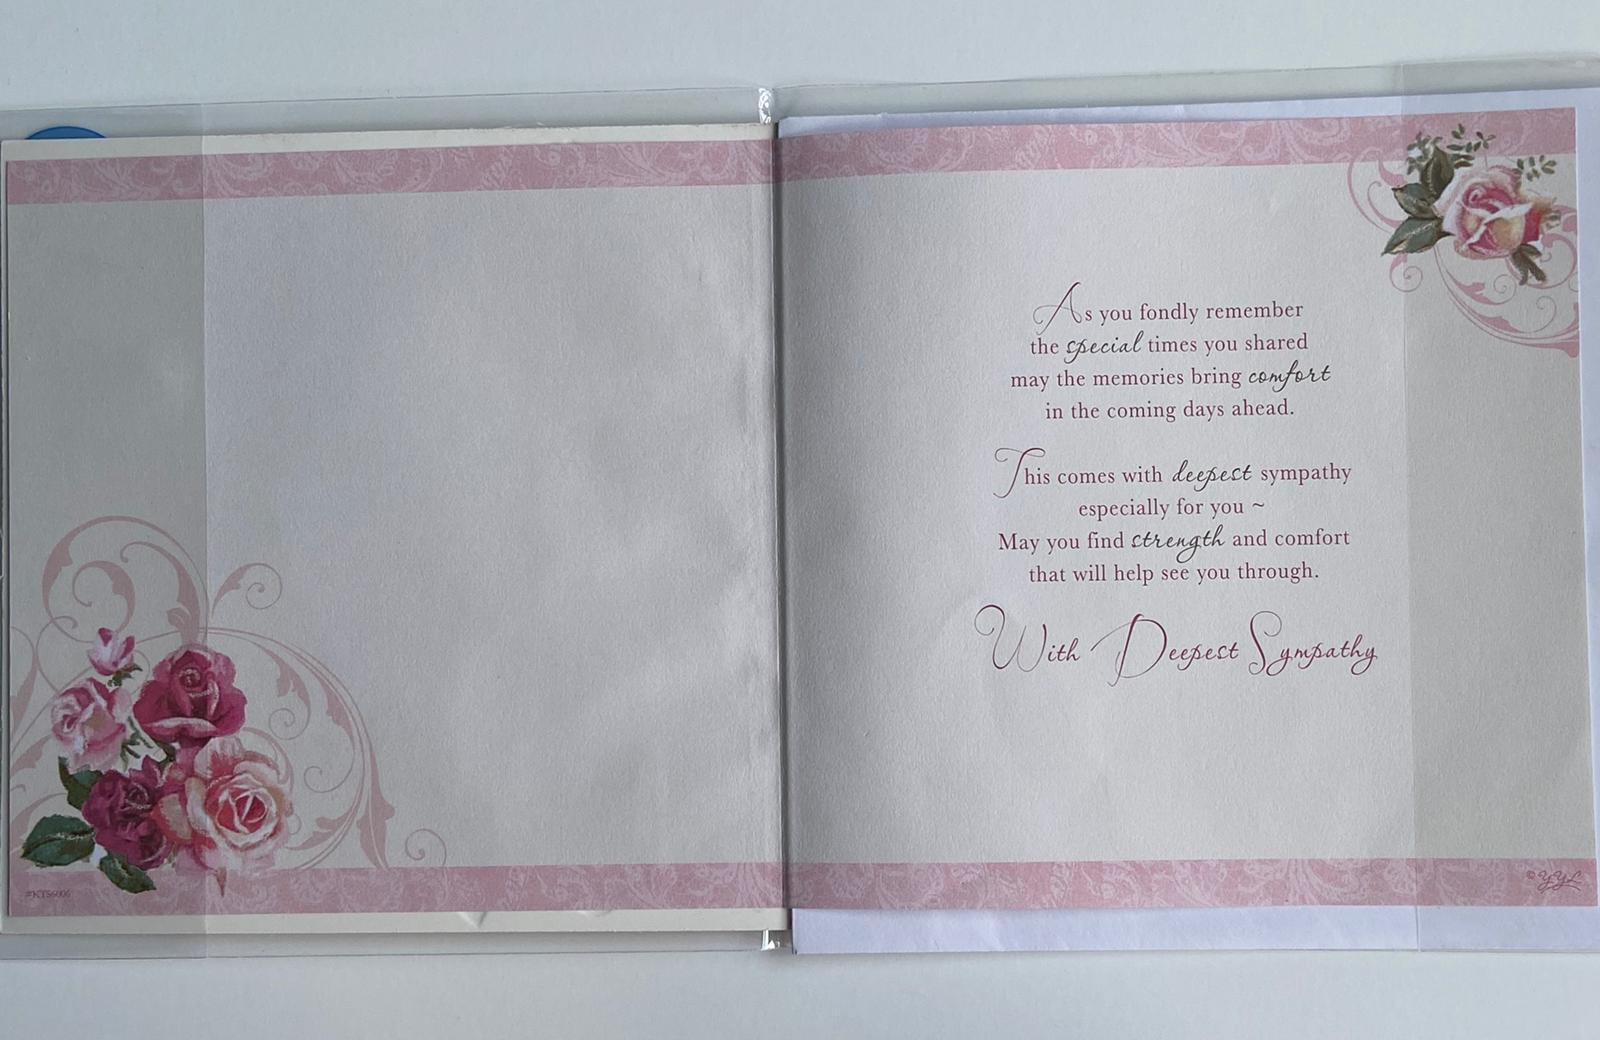 As you fondly remember
the special times you shared
may the memories bring comfort
in the coming days ahead.
This comes with deepest sympathy
especially for you ~
May you find strength and comfort
that will help see you through.
With Deepest Sympathy